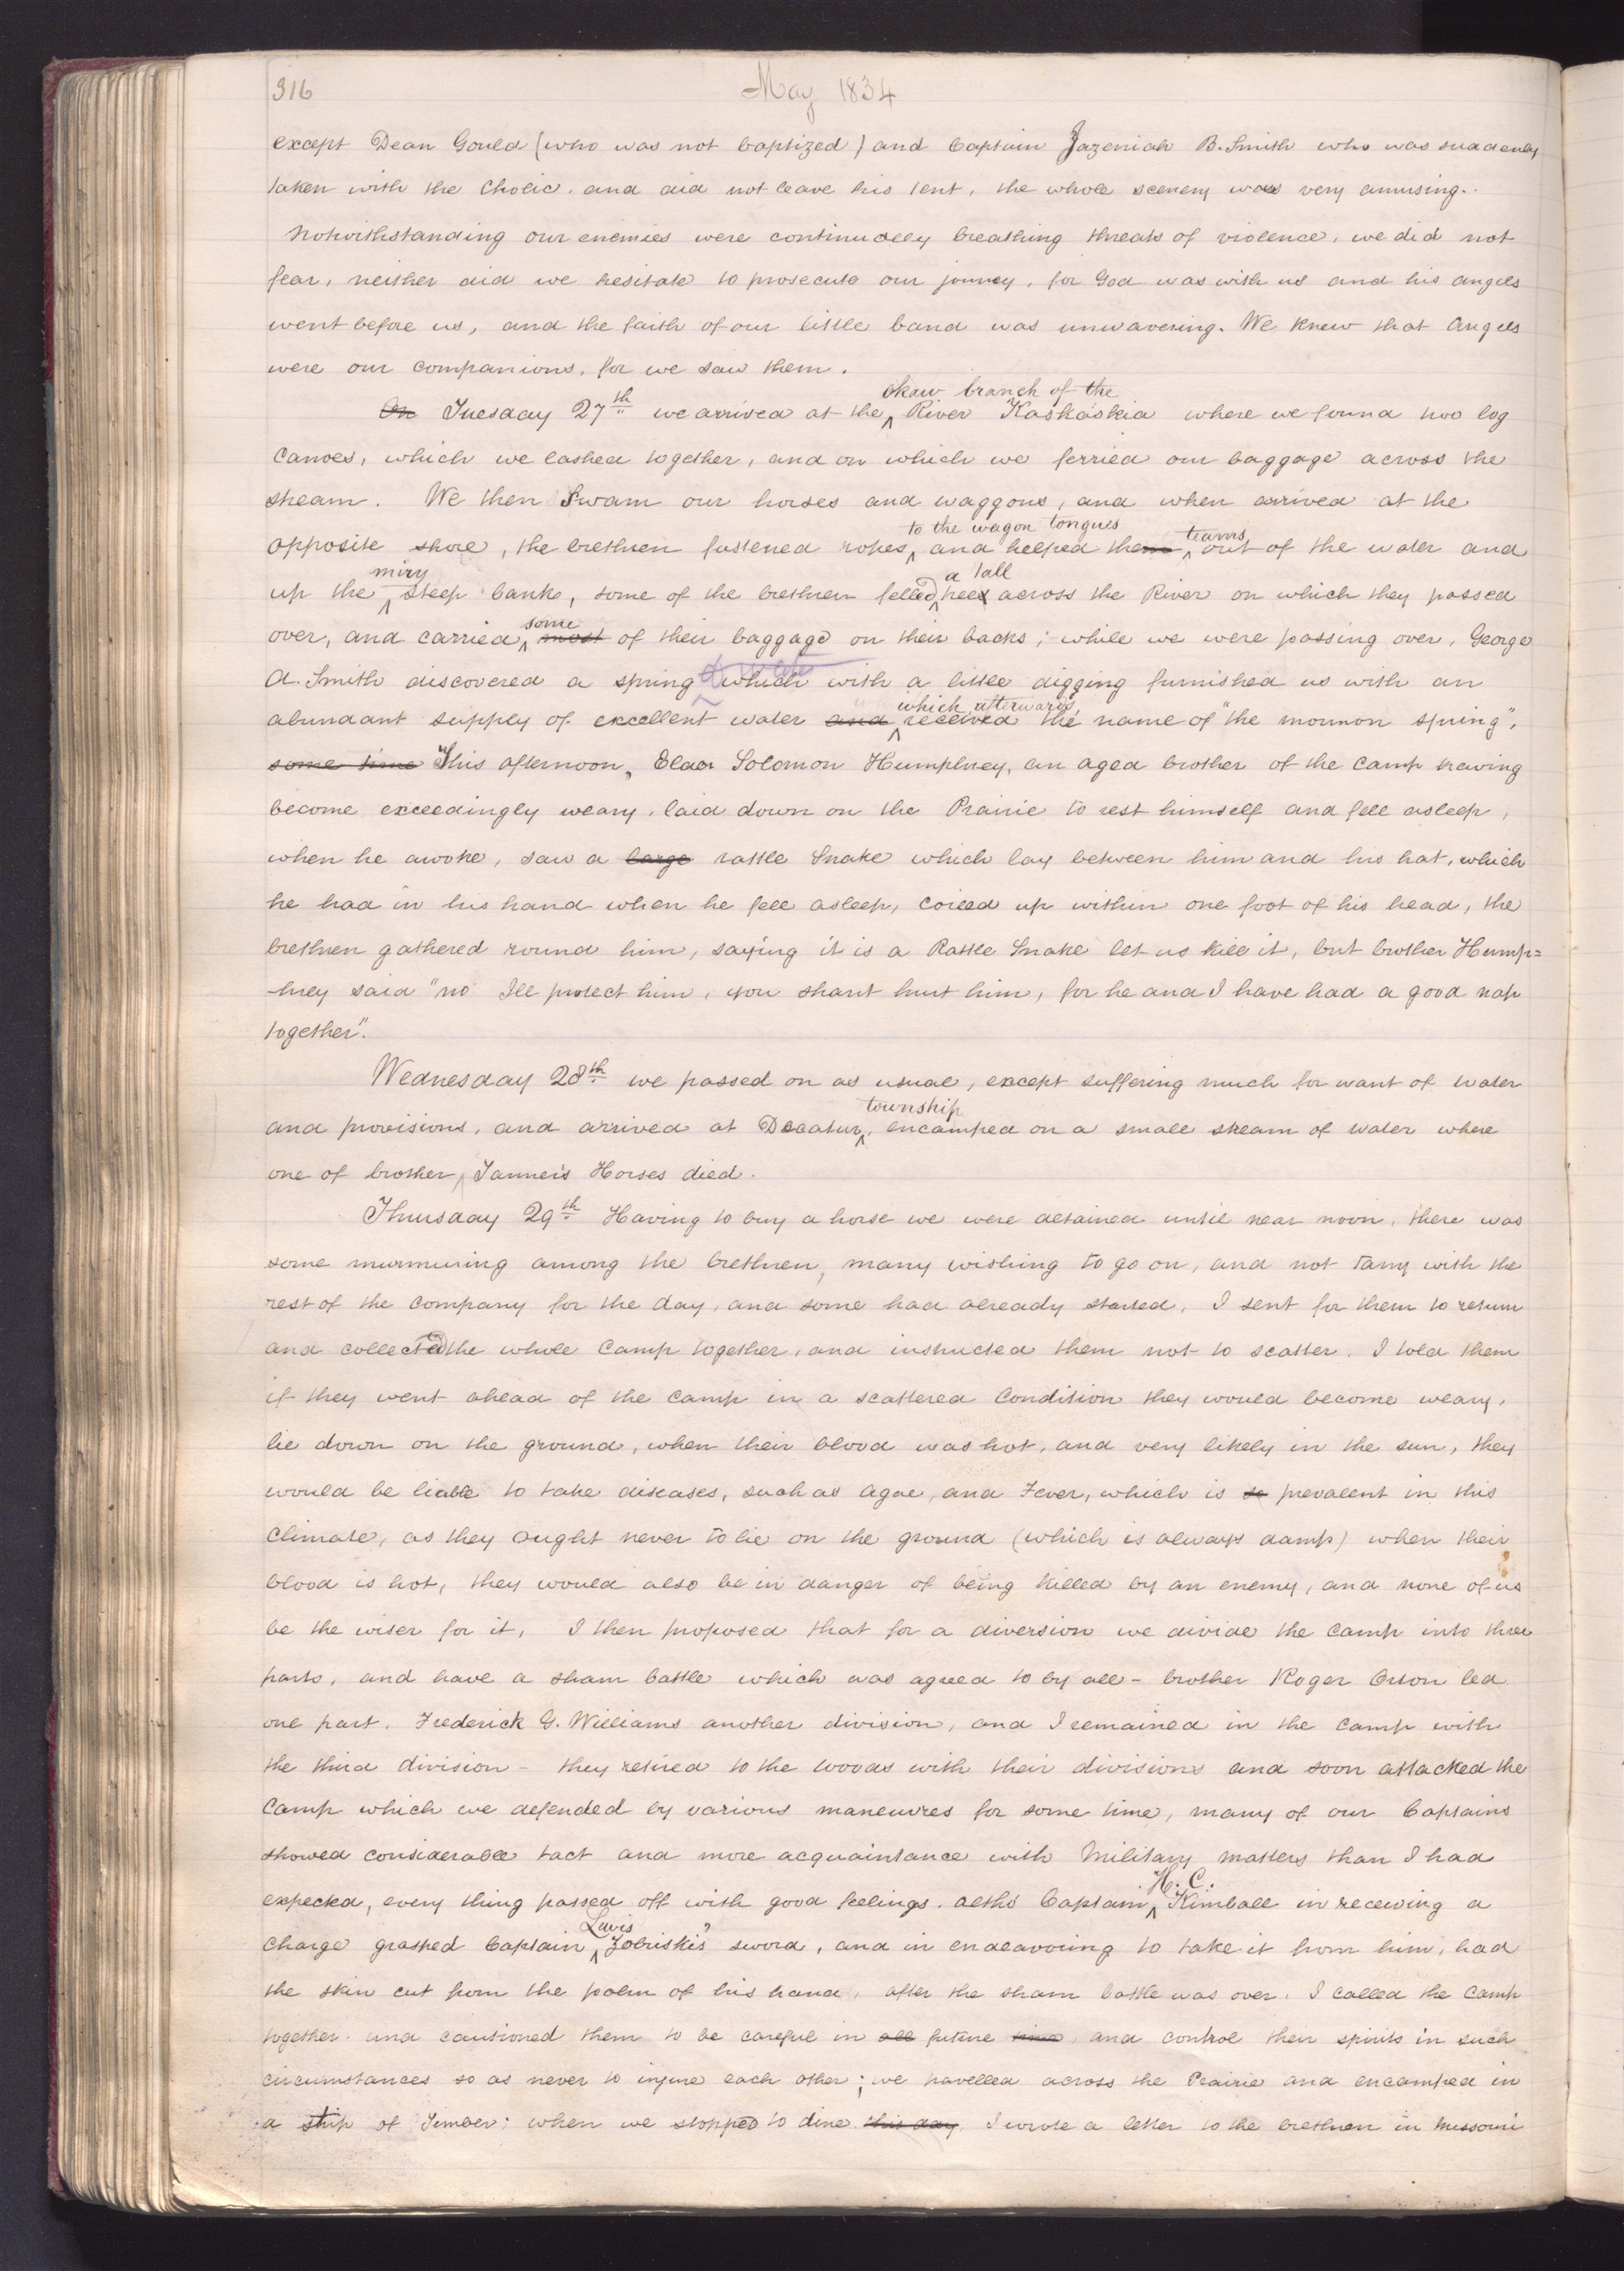 316
May 1834
except Dean Gould (who was not baptized) and Captain Jazeniah B. Smith who was suddenly
taken with the Cholic, and did not leave his tent, the whole scenery was very amusing.
Notwithstanding our enemies were continually breathing threats of violence, we did not
fear, neither did we hesitate to prosecute our journey, for God was with us and his angels
went before us, and the faith of our little band was unwavering. We knew that Angels
were our companions, for we saw them.
okaw branch of the
On Tuesday 27th we arrived at the River Kaskaskia where we found two log
Canoes, which we lashed together, and on which we ferried our baggage across the
stream. We then Swam our horses and waggons, and when arrived at the
to the wagon tongues teams
opposite shore, the brethren fastened ropes, and helped them out of the water and
miry a tall
up the steep banks, some of the brethren felled trees across the River on which they passed
some
over, and carried, most of their baggage on their backs; while we were passing over, George
of water
A. Smith discovered a spring which with a little digging furnished us with an
which afterwards
abundant supply of excellent water and received the name of "the mormon spring",
some time This afternoon, Elder Solomon Humphrey, an aged brother of the Camp having
become exceedingly weary, laid down on the Prairie to rest himself and fell asleep,
when he awoke, saw a large rattle Snake which lay between him and his hat, which
he had in his hand when he fell asleep, coiled up within one foot of his head, the
brethren gathered round him, saying it is a Rattle Snake let us kill it, but brother Hump=
-hrey said "no Ill protect him, you shant hurt him, for he and I have had a good nap
together".
Wednesday 28th we passed on as usual, except suffering much for want of water
township
and provisions, and arrived at Decatur, encamped on a small stream of water where
one of brother Tanner's Horses died.
Thursday 29th Having to buy a horse we were detained until near noon, there was
some murmuring among the brethren, many wishing to go on, and not tarry with the
rest of the Company for the day, and some had already started, I sent for them to return
and collected the whole Camp together, and instructed them not to scatter. I told them
if they went ahead of the camp in a scattered Condition they would become weary,
lie down on the ground, when their blood was hot, and very likely in the sun, they
would be liable to take diseases, such as Ague, and Fever, which is so prevalent in this
Climate, as they ought never to lie on the ground (which is always damp) when their
blood is hot, they would also be in danger of being killed by an enemy, and none of us
be the wiser for it, I then proposed that for a diversion we divide the camp into three
parts, and have a sham battle which was agreed to by all – brother Roger Orton led
one part. Frederick G. Williams another division, and I remained in the camp with
the third division – they retired to the woods with their divisions and soon attacked the
Camp which we defended by various maneuvres for some time, many of our Captains
showed considerable tact and more acquaintance with Military matters than I had
H. C.
expected, every thing passed off with good feelings. altho' Captain Kimball in receiving a
Lewis
charge grasped Captain Zobriski's sword, and in endeavoring to take it from him, had
the skin cut from the palm of his hand, after the sham battle was over. I called the Camp
together. and cautioned them to be careful in all future time and control their spirits in such
circumstances so as never to injure each other; we travelled across the Prairie and encamped in
a strip of Timber; when we stopped to dine this day I wrote a letter to the brethren in Missouri